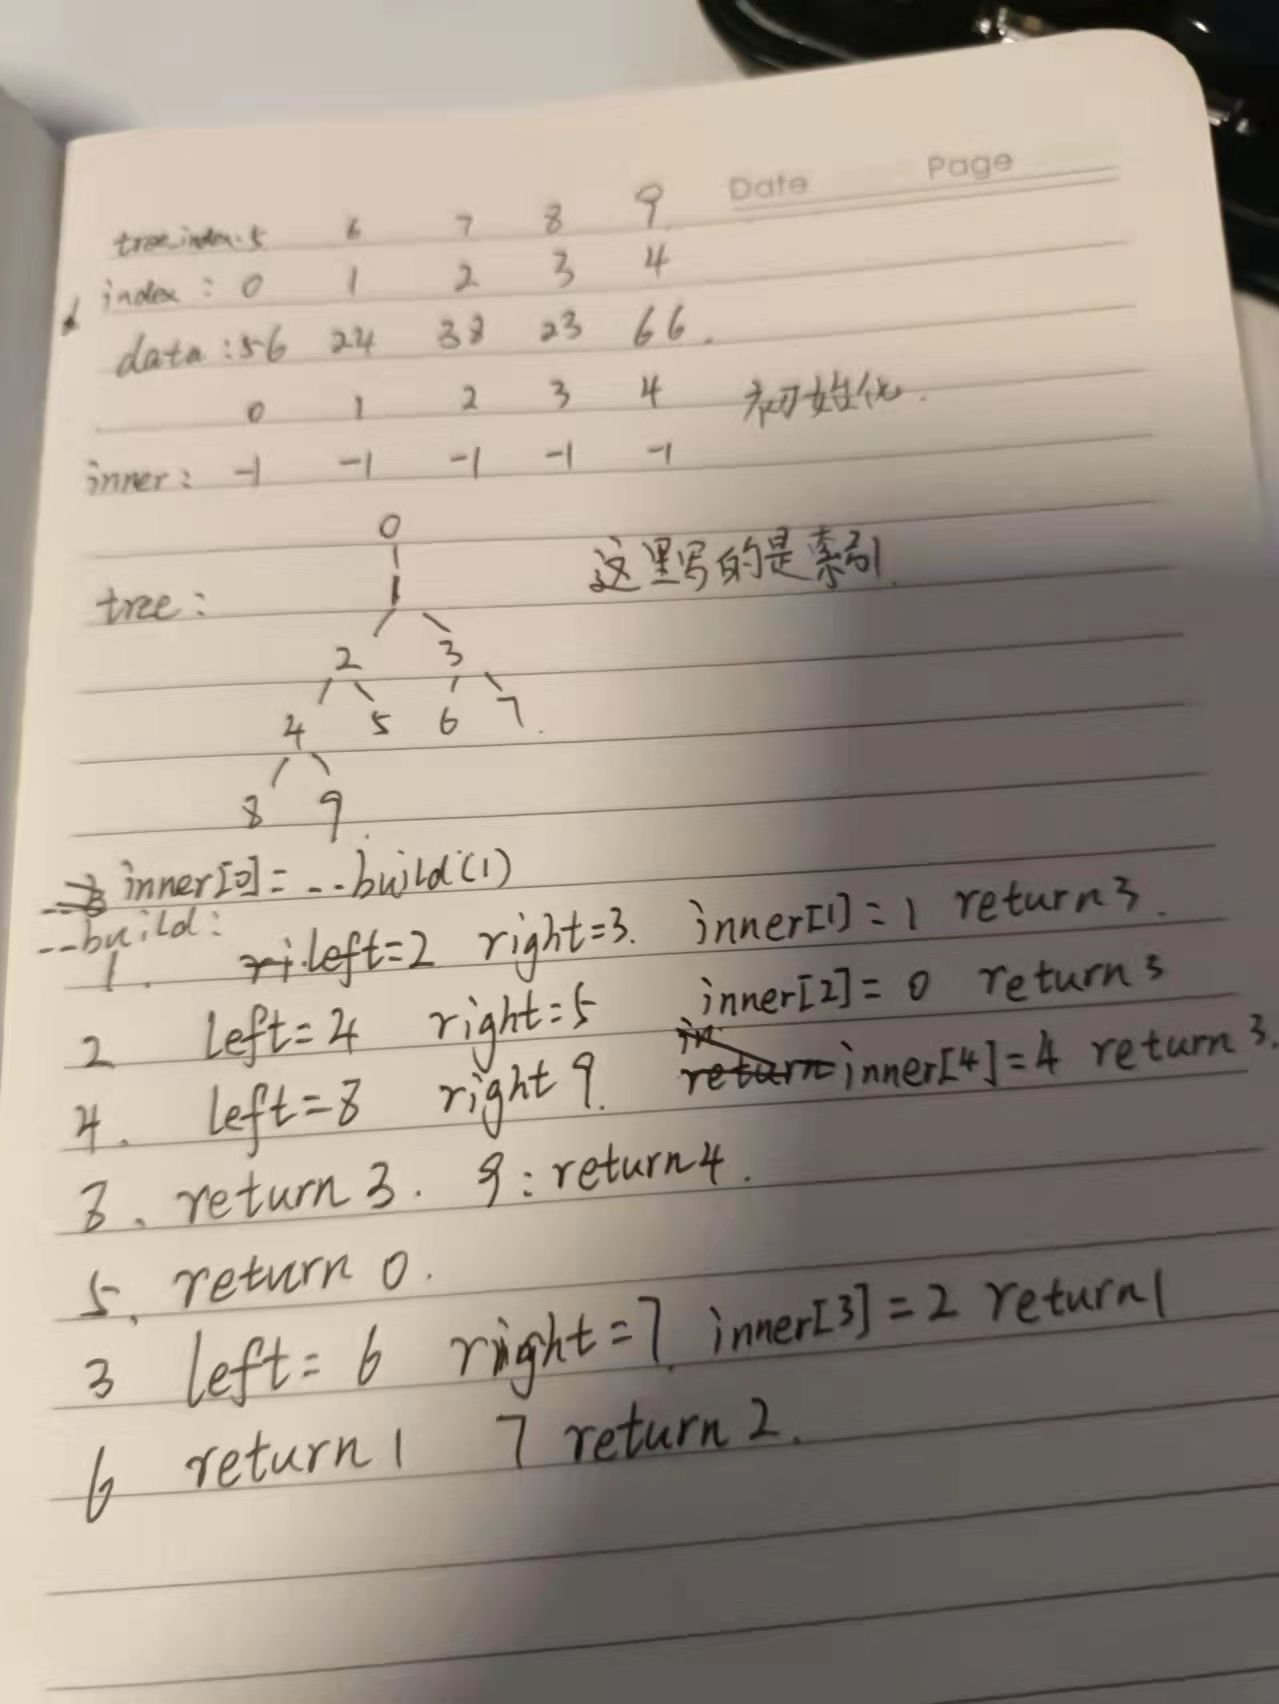 Date Page
tree_index: 5 6 7 8 9
index: 0 1 2 3 4
data: 56 24 38 23 66.
0 1 2 3 4 初始化.
inner: -1 -1 -1 -1 -1
0
这里写的是索引.
tree: 1
2 3
4 5 6 7.
8 9.
inner[0]= --build(1)
--build:
1. left=2 right=3. inner[1]=1 return 3.
2 left=4 right=5 inner[2]=0 return 3
4. left=8 right 9. inner[4]=4 return 3.
8. return 3. 9: return 4.
5. return 0.
3 left=6 right=7. inner[3]=2 return 1
6 return 1 7 return 2.